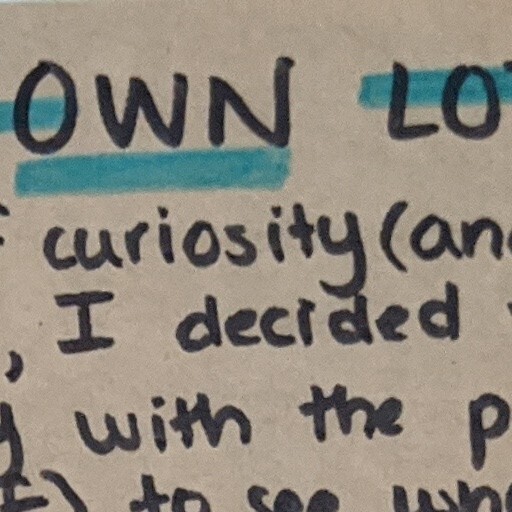 OWN LO
curiosity (an
, I decided
y with the p
) to see wh